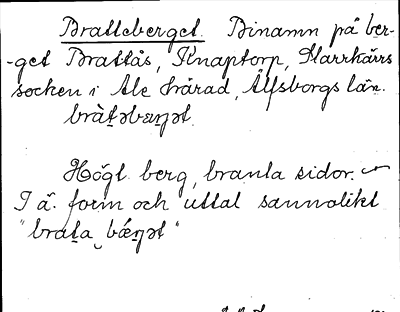 Bratteberget. Binamn på ber-
-get Brattås, Knaptorp, Starrkärrs
socken i Ale härad, Älfsborgs län.
bràt̠əbæŋət.
Högt berg, branta sidor.
I ä. form och uttal sannolikt
"brat̠a bǽŋət"